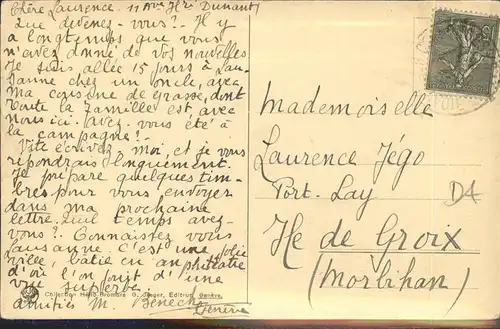 Chère Laurence - 11 Ave Hri Dunant
Que devenez-vous? - Il y
a longtemps que vous
n'avez donné de vos nouvelles
Je suis allée 15 jours à Lau-
sanne chez un oncle, avec
ma cousine de Grasse, dont
toute la famille est avec
nous ici. avez-vous été à
la campagne? -
Vite écrivez-moi, et je vous
répondrais longuement.
Je prépare quelques tim-
bres pour vous envoyer
dans ma prochaine
lettre. Quel temps avez-
vous? - Connaissez vous
Lausanne c'est une jolie
ville, bâtie en amphitéatre
d'où l'on jouit d'une
vue superbe.
amitiés M. Benech
Genève
Collection Helio-Bromure G. Jaeger, Editeur, Genève.
Mademoiselle
Laurence Jégo
Port-Lay
Ile de Groix
(Morbihan)
D4